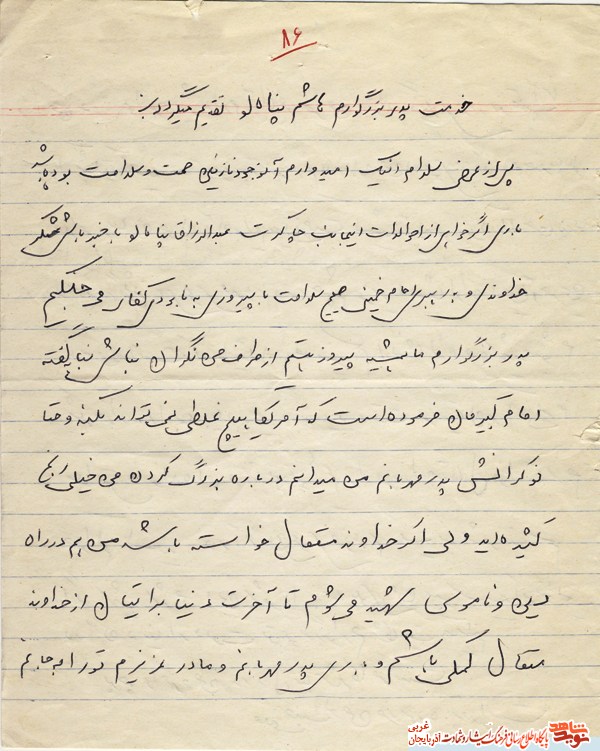 ۸۶
خدمت پدر بزرگوارم هاشم پناه لو تقدیم میگردد
پس از عرض سلام اینک امیدوارم آن وجود نازنین صحت و سلامت بوده باشد
باری اگر خواهی از احوالات اینجانب چاکرت عبدالرزاق پناه لو با خبر باشی شکر
خداوندی و به رهبری امام خمینی صحیح سلامت با پیروزی به نابودی کفار می جنگیم
پدر بزرگوارم ما همیشه پیروز هستیم از طرف من نگران نباش بنا بگفته
امام کبیرمان فرموده است که آمریکا هیچ غلطی نمی تواند بکند و حتا
نوکرانش پدر مهربانم من میدانم در باره بزرگ کردن من خیلی رنج
کشیده اید ولی اگر خداوند متعال خواسته باشد من هم در راه
دین و ناموس شهید می شوم تا آخرت دنیا برایتان از خداوند
متعال کمکی باشم و باری پدر مهربانم و مادر عزیزم تو را به جانم
شاهد نوید
پایگاه اطلاع رسانی فرهنگ ایثار و شهادت آذربایجان غربی